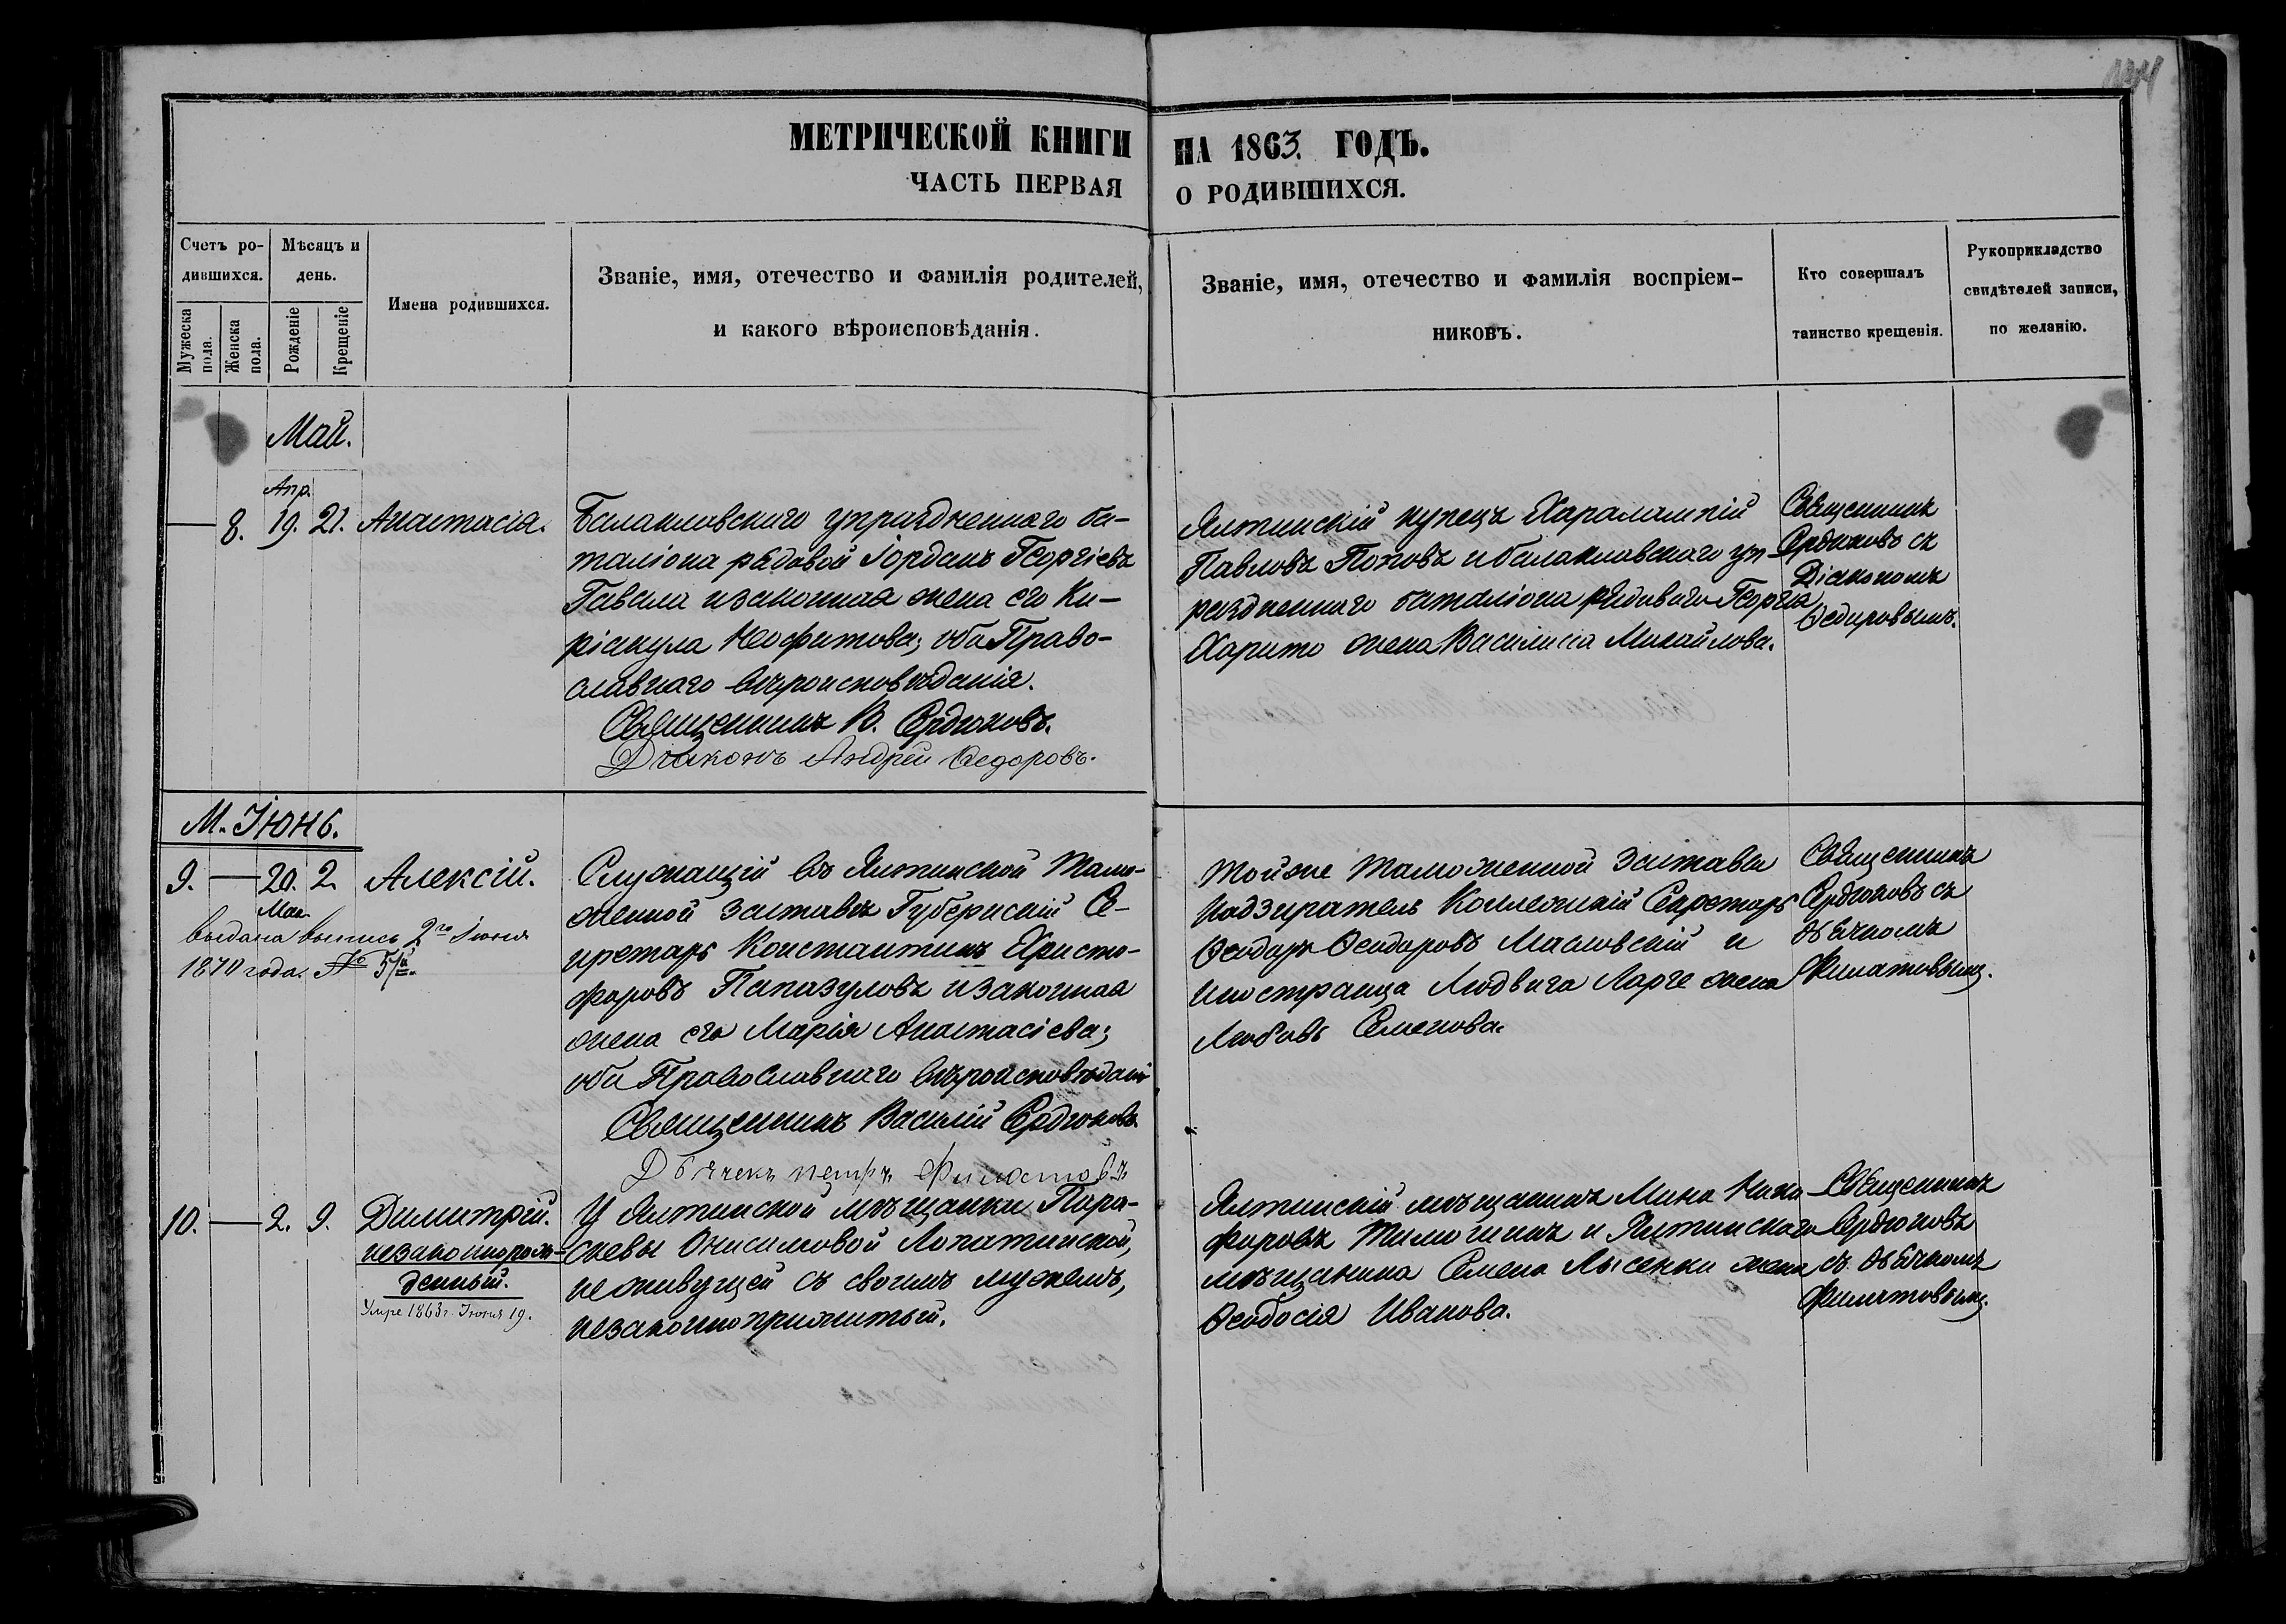 МЕТРИЧЕСКОЙ КНИГИ НА 1863. ГОДЪ.
ЧАСТЬ ПЕРВАЯ О РОДИВШИХСЯ.
Счетъ ро-
дившихся.
Мужеска
пола.
Женска
пола.
Мѣсяцъ и
день.
Рожденіе
Крещеніе
Имена родившихся.
Званіе, имя, отечество и фамилія родителей,
и какого вѣроисповѣданія.
Званіе, имя, отечество и фамилія воспріем-
никовъ.
Кто совершалъ
таинство крещенія.
Рукоприкладство
свидѣтелей записи,
по желанію.
Май.
Апр.
— 8. 19. 21. Анастасія.
Балаклавскаго упраздненнаго ба-
таліона рядовой Іорданъ Георгіевъ
Гавала изаконная жена его Ки-
ріакула Неофитова; оба Право-
славнаго вѣроисповѣданія.
Священникъ В. Сердюковъ.
Діаконъ Андрей Федоровъ.
Ялтинскій купецъ Харалампій
Павловъ Поповъ и балаклавскаго уп-
раздненнаго баталіона рядоваго Георгія
Харито жена Василисса Михайлова.
Священникъ
Сердюковъ съ
Діакономъ
Ѳедоровымъ.
М. Іюнь.
9. — 20. 2. Алексій.
Мая.
выдана выпись 2го Іюня
1870 года. №
Служащій въ Ялтинской Тамо-
женной заставѣ Губернскій Се-
кретарь Константинъ Христо-
форовъ Папазуловъ изаконная
жена его Марія Анастасіева;
оба Православнаго вѣроисповѣдані
Священникъ Василій Сердюковъ
Дьячекъ петръ Филатовъ
Тойже Таможенной заставы
Надзиратель Коллежскій Секретарь
Ѳеодоръ Ѳеодоровъ Масловскій и
Иностранца Людвига Ларге жена
Любовь Семенова.
Священникъ
Сердюковъ съ
дьячкомъ
Филатовымъ.
10. — 2. 9. Димитрій.
незаконнорож-
денный.
Умре 1863г. Іюня 19.
У Ялтинской мѣщанки Пара-
скевы Онисимовой Лопатинской,
неживущей съ своимъ мужемъ,
незаконноприжитый.
Ялтинскій мѣщанинъ Мина Ники-
форовъ Тимошинъ и Ялтинскаго
мѣщанина Семена Лысенки жена
Ѳеодосія Иванова.
Священникъ
Сердюковъ
съ дьячкомъ
Филатовымъ.